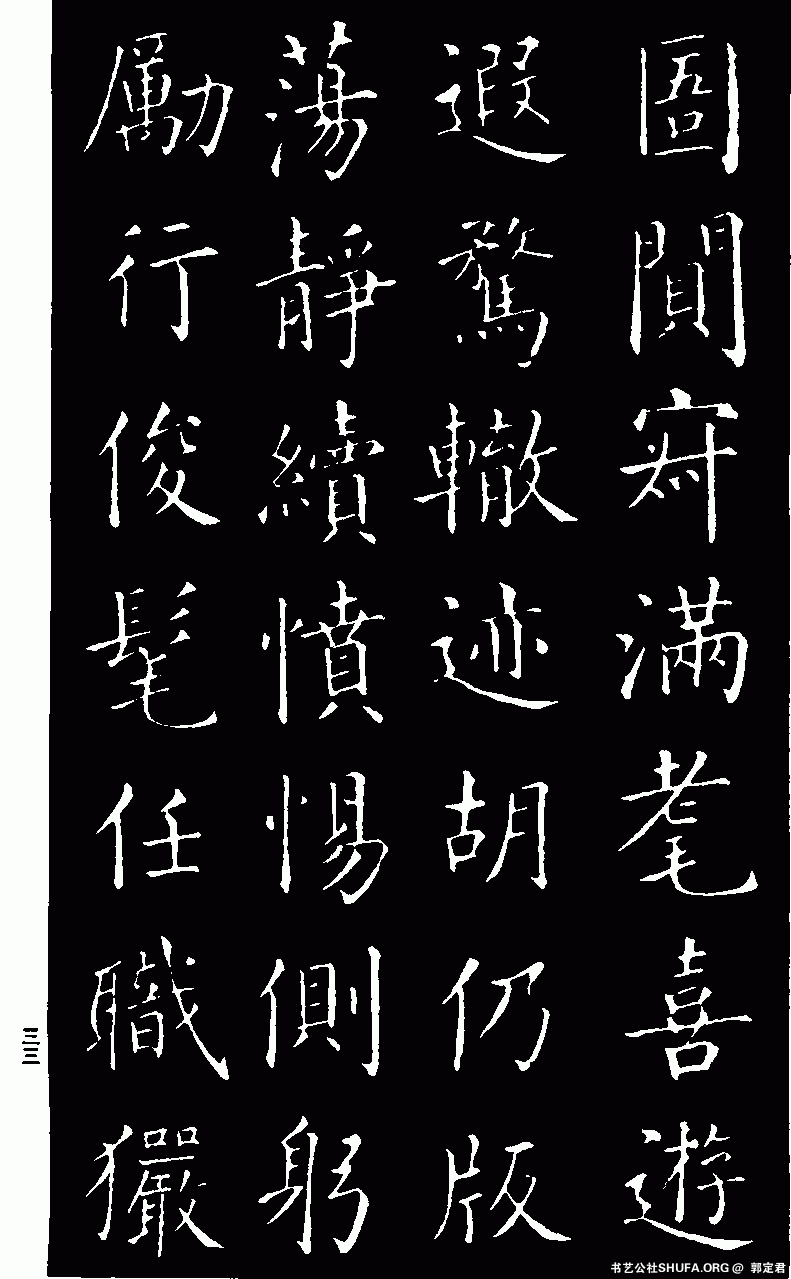 圄閴寂滿耄喜遊
遐驚轍迹胡仍版
蕩靜續憤惕側躬
勵行俊髦任職玁
三三
书艺公社SHUFA.ORG @ 郭定君